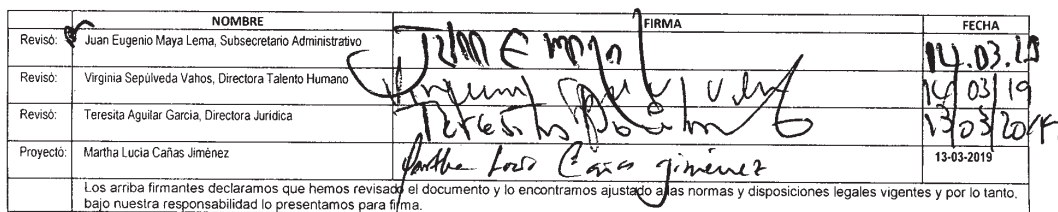 NOMBRE FIRMA FECHA
Revisó: Juan Eugenio Maya Lema, Subsecretario Administrativo Juan E Maya L 14.03.19
Revisó: Virginia Sepúlveda Vahos, Directora Talento Humano 14/03/19
Revisó: Teresita Aguilar Garcia, Directora Jurídica 13/03/2019
Proyectó: Martha Lucia Cañas Jiménez Martha Lucia Cañas Jiménez 13-03-2019
Los arriba firmantes declaramos que hemos revisado el documento y lo encontramos ajustado a las normas y disposiciones legales vigentes y por lo tanto,
bajo nuestra responsabilidad lo presentamos para firma.